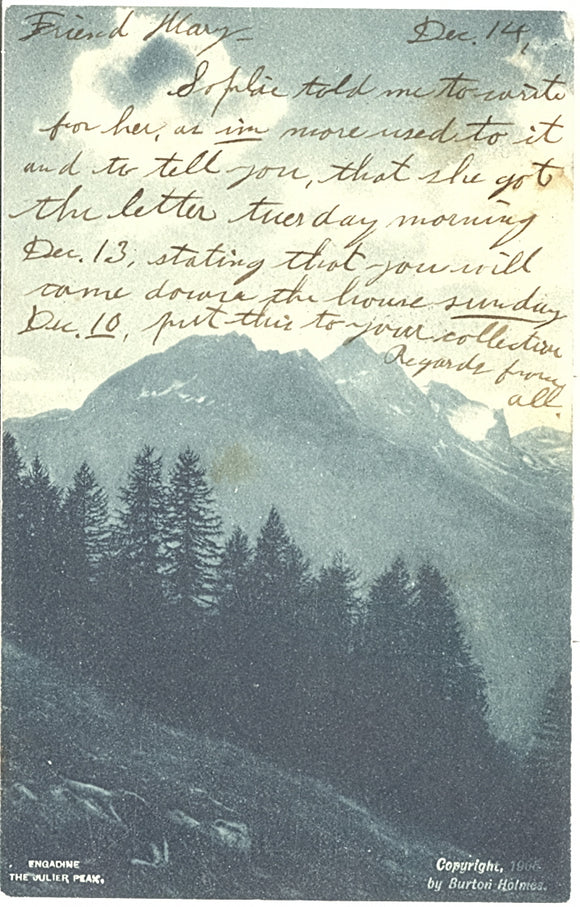 Friend Mary – Dec. 14,
Sophie told me to write
for her, as im more used to it
and to tell you, that she got
the letter tuesday morning
Dec. 13, stating that you will
come down the house sunday
Dec. 10, put this to your collection
Regards from
all.
ENGADINE
THE JULIER PEAK.
Copyright,
by Burton Holmes.